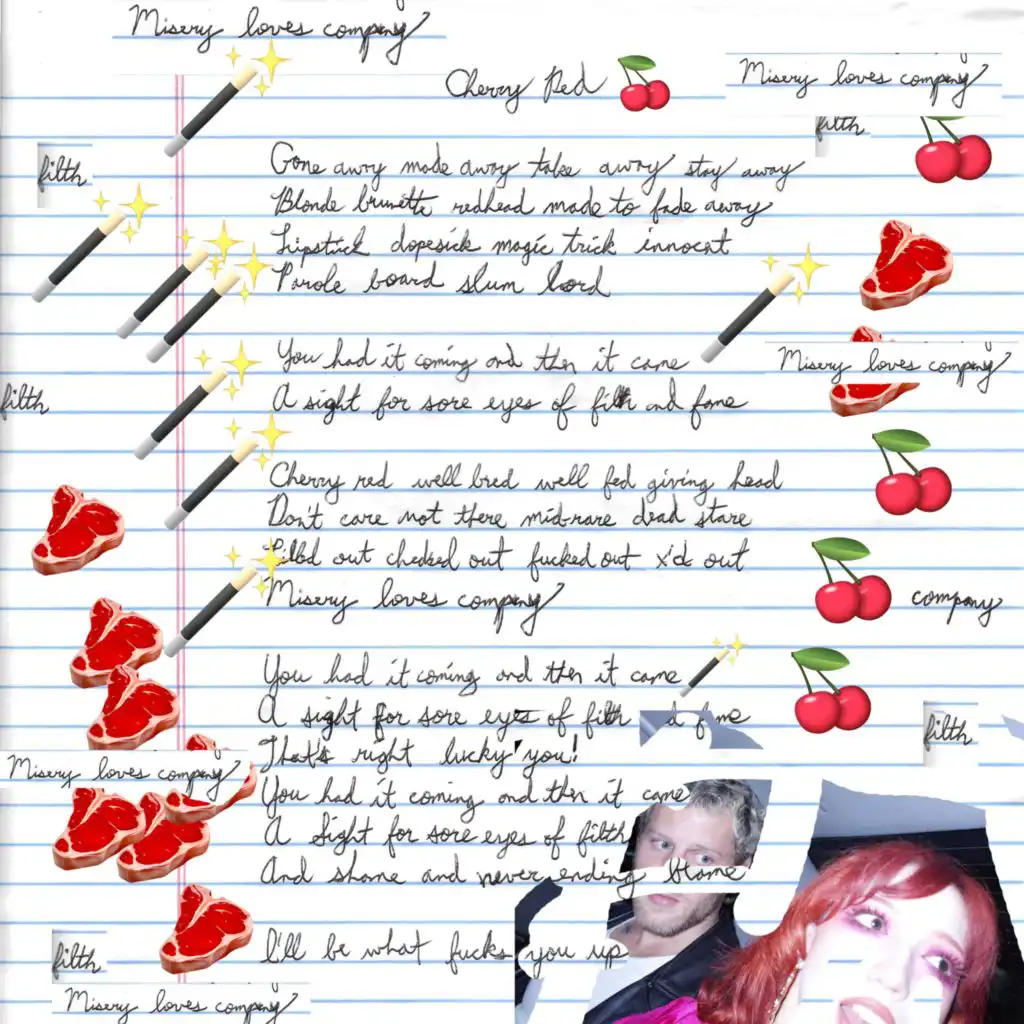 Misery loves company
Cherry Red
Misery loves company
filth
filth
Gone away made away take away stay away
Blonde brunette redhead made to fade away
Lipstick dopesick magic trick innocent
Parole board slum lord
You had it coming and then it came
Misery loves company
A sight for sore eyes of filth and fame
filth
Cherry red well bred well fed giving head
Don't care not there mid-rare dead stare
Pilled out checked out fucked out x'd out
Misery loves company
company
You had it coming and then it came
A sight for sore eyes of filth and fame
filth
That's right lucky you!
Misery loves company
You had it coming and then it came
A sight for sore eyes of filth
And shame and never ending blame
I'll be what fucks you up
filth
Misery loves company